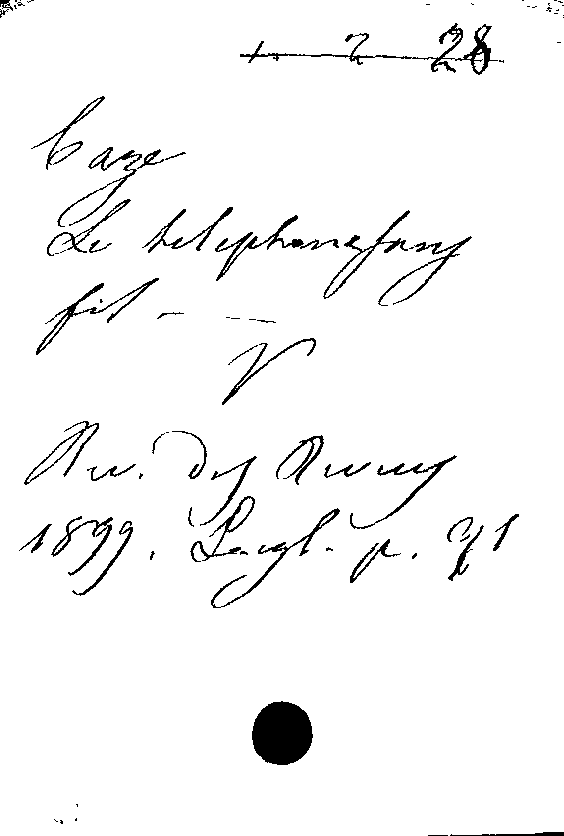 1. 2 28
Caze
Le telephone sans
fil - - -
V
Rev. des Revues
1899. Laugl. p. 71